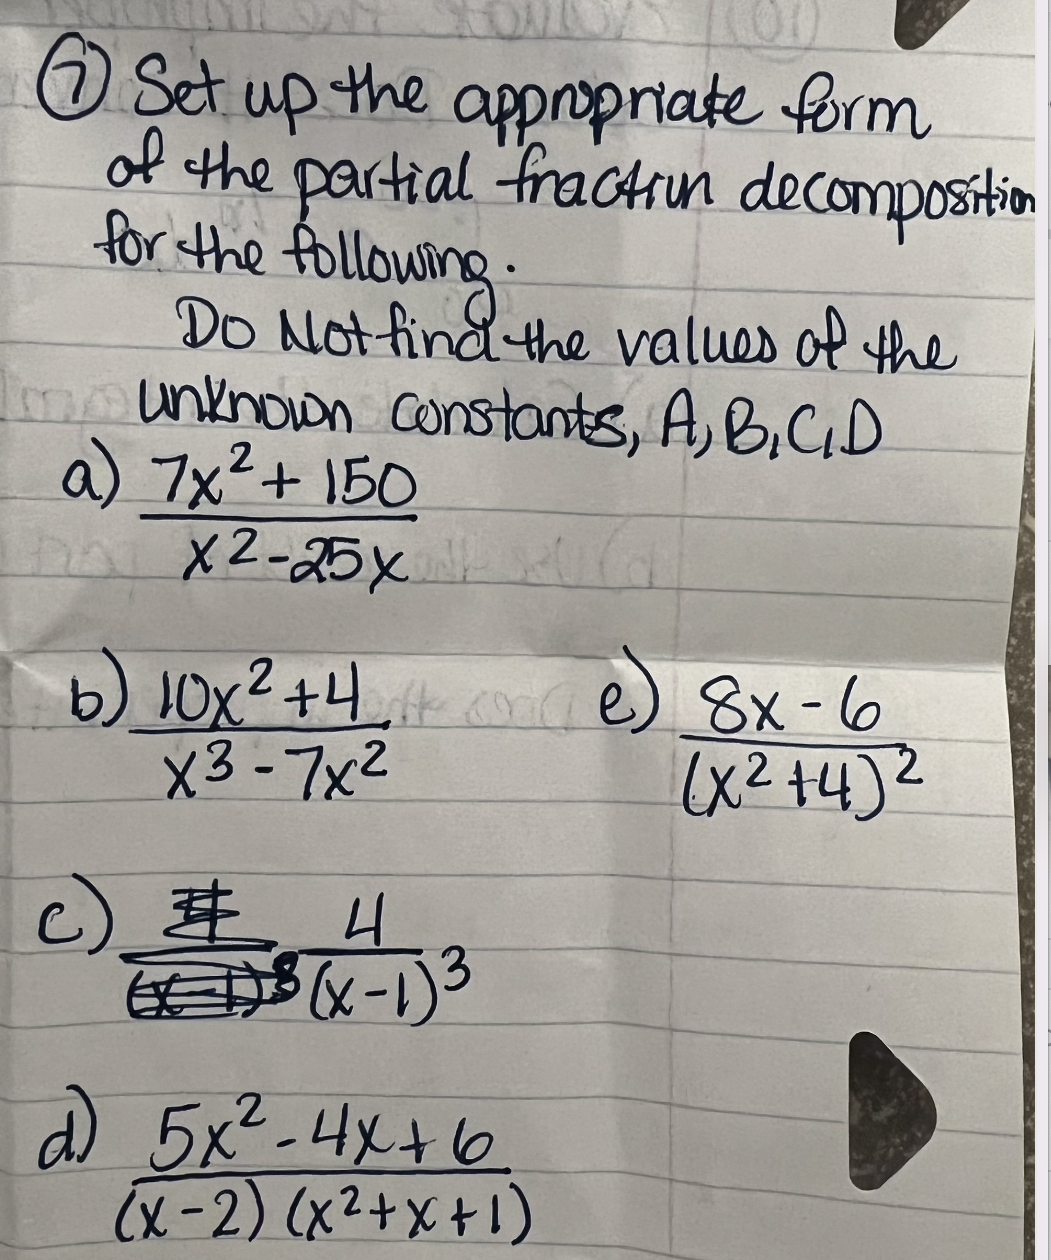 ⑦ Set up the appropriate form
of the partial fraction decomposition
for the following.
Do Not find the values of the
unknown constants, A, B, C, D
a) 7x² + 150
x² - 25x
b) 10x² + 4
x³ - 7x²
e) 8x - 6
(x² + 4)²
c) 4
(x - 1)³
d) 5x² - 4x + 6
(x - 2) (x² + x + 1)